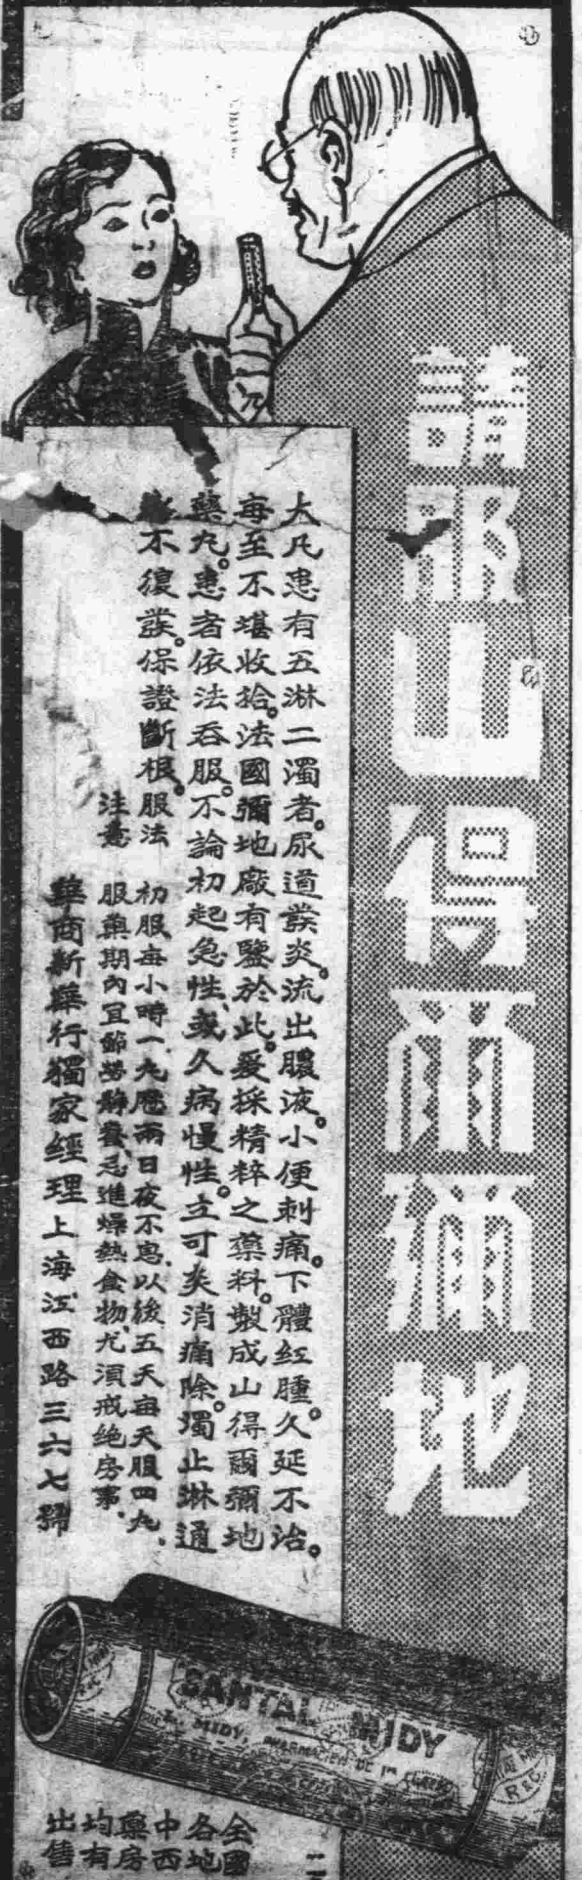 請服山得爾彌地
大凡患有五淋二濁者。尿道發炎。流出膿液。小便刺痛。下體紅腫。久延不治。
每至不堪收拾。法國彌地廠有鑒於此。爰採精粹之藥料。製成山得爾彌地
藥丸。患者依法吞服。不論初起急性、或久病慢性。立可炎消痛除。濁止淋通
不復發。保證斷根。
服法 初服每小時一丸歷兩日夜不息、以後五天每天服四丸、
注意 服藥期內宜節勞靜養、忌進燥熱食物、尤須戒絶房事、
華商新藥行獨家經理上海江西路三六七號
SANTAL MIDY
MIDY, PHARMACIEN DE 1re
R&C.
全國各地中西藥房均有出售